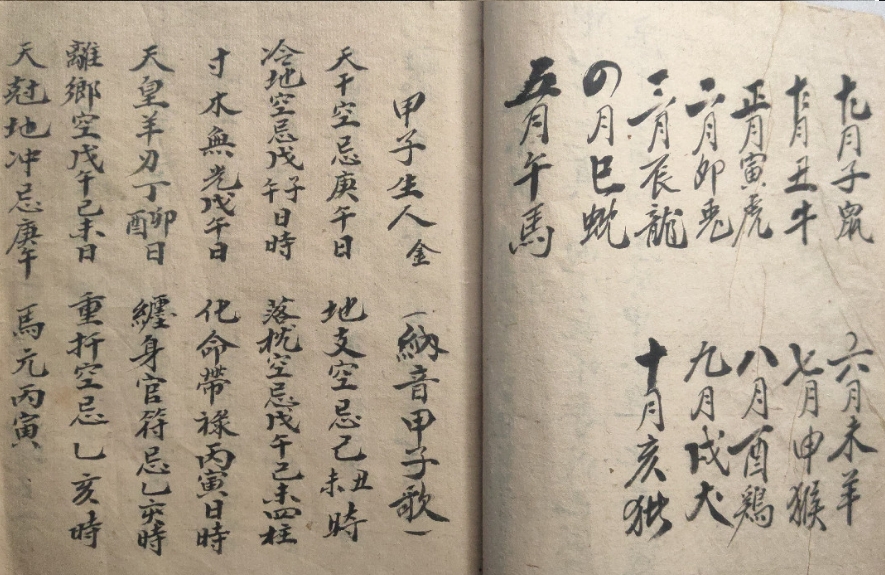 十一月子鼠 六月未羊
十二月丑牛 七月申猴
正月寅虎 八月酉鶏
二月卯兎 九月戌犬
三月辰龍 十月亥
四月巳蛇
五月午馬
甲子生人金 （納音甲子歌）
天干空忌庚午日 地支空忌己丑未時
冷地空忌戊子午日時 落枕空忌戊午己未四柱
寸木無光戊午日 化命帶禄丙寅日時
天皇羊刃丁卯酉日 纏身官符忌乙亥時
離鄉空戊午己未日 重折空忌乙亥時
天尅地冲忌庚午 馬元丙寅